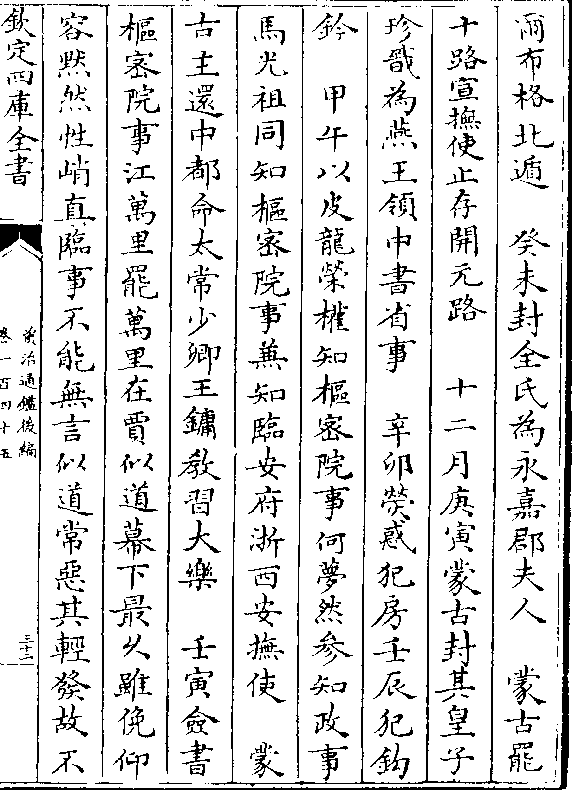 爾布格北遁　癸未封全氏為永嘉郡夫人　蒙古罷
十路宣撫使止存開元路　十二月庚寅蒙古封其皇子
珍戬為燕王領中書省事　辛卯熒惑犯房壬辰犯鈎
鈐　甲午以皮龍榮權知樞宻院事何夢然參知政事
馬光祖同知樞宻院事兼知臨安府浙西安撫使　蒙
古主還中都命太常少卿王鏞教習大樂　壬寅僉書
樞宻院事江萬里罷萬里在賈似道幕下最久雖俛仰
容黙然性峭直臨事不能無言似道常惡其輕發故不
欽定四庫全書
資治通鑑後編
卷一百四十五
三十二